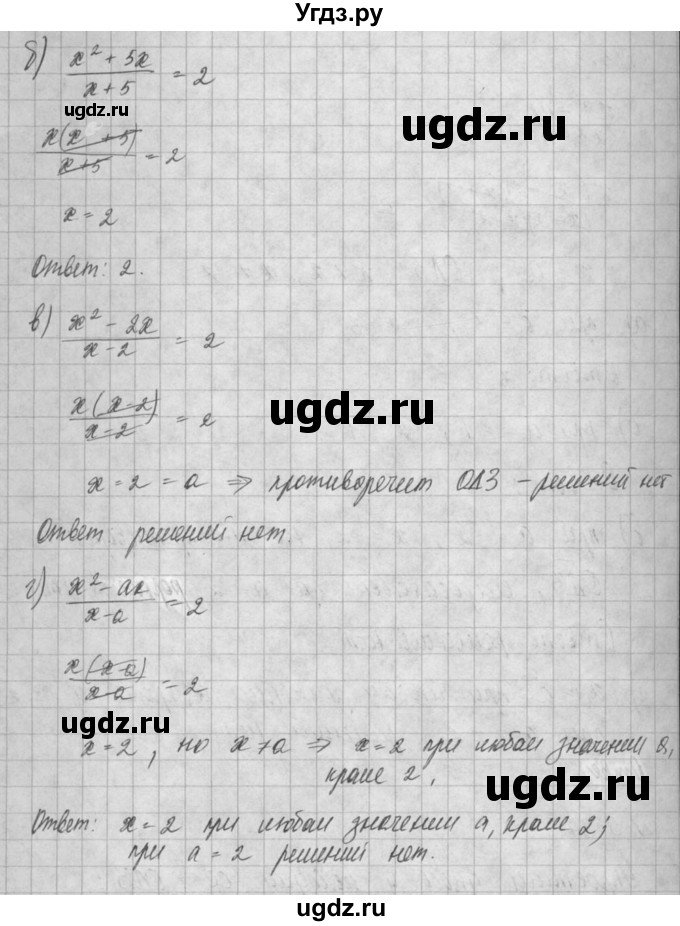 Угдз.ру
б) (x² + 5x)/(x + 5) = 2
ugdz.ru
ugdz.ru
x(x + 5)/(x + 5) = 2
x = 2
Ответ: 2.
в) (x² - 2x)/(x - 2) = 2
x(x - 2)/(x - 2) = 2
ugdz.ru
x = 2 = a ⇒ противоречит ОДЗ – решений нет
Ответ решений нет.
г) (x² - ax)/(x - a) = 2
x(x - a)/(x - a) = 2
ugdz.ru
x = 2, но x ≠ a ⇒ x = 2 при любом значении a,
кроме 2,
ugdz.ru
Ответ: x = 2 при любом значении a, кроме 2;
при a = 2 решений нет.
ugdz.ru